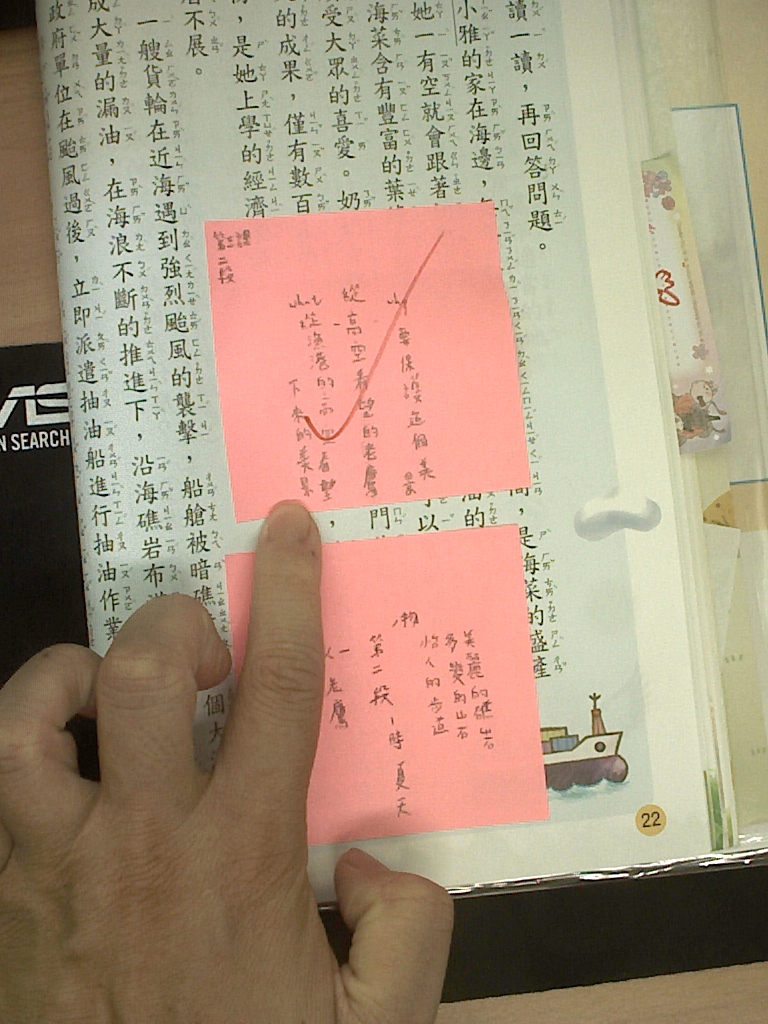 讀一讀，再回答問題。
小雅的家在海邊，
她一有空就會跟著
海菜含有豐富的葉
受大眾的喜愛。奶
的成果，僅有數百
，是她上學的經濟
不展。
一艘貨輪在近海遇到強烈颱風的襲擊，船艙被暗礁
成大量的漏油，在海浪不斷的推進下，沿海礁岩布
政府單位在颱風過後，立即派遣抽油船進行抽油作業
是海菜的盛產
可以
油的
門
個大
第三課
第二段
why 要保護這個美景
從高空看望的老鷹
what 從漁港的高空看望
下來的美景
物
美麗的礁岩
多變的山石
怡人的步道
第二段、時 夏天
人 一老鷹
22
N SEARCH